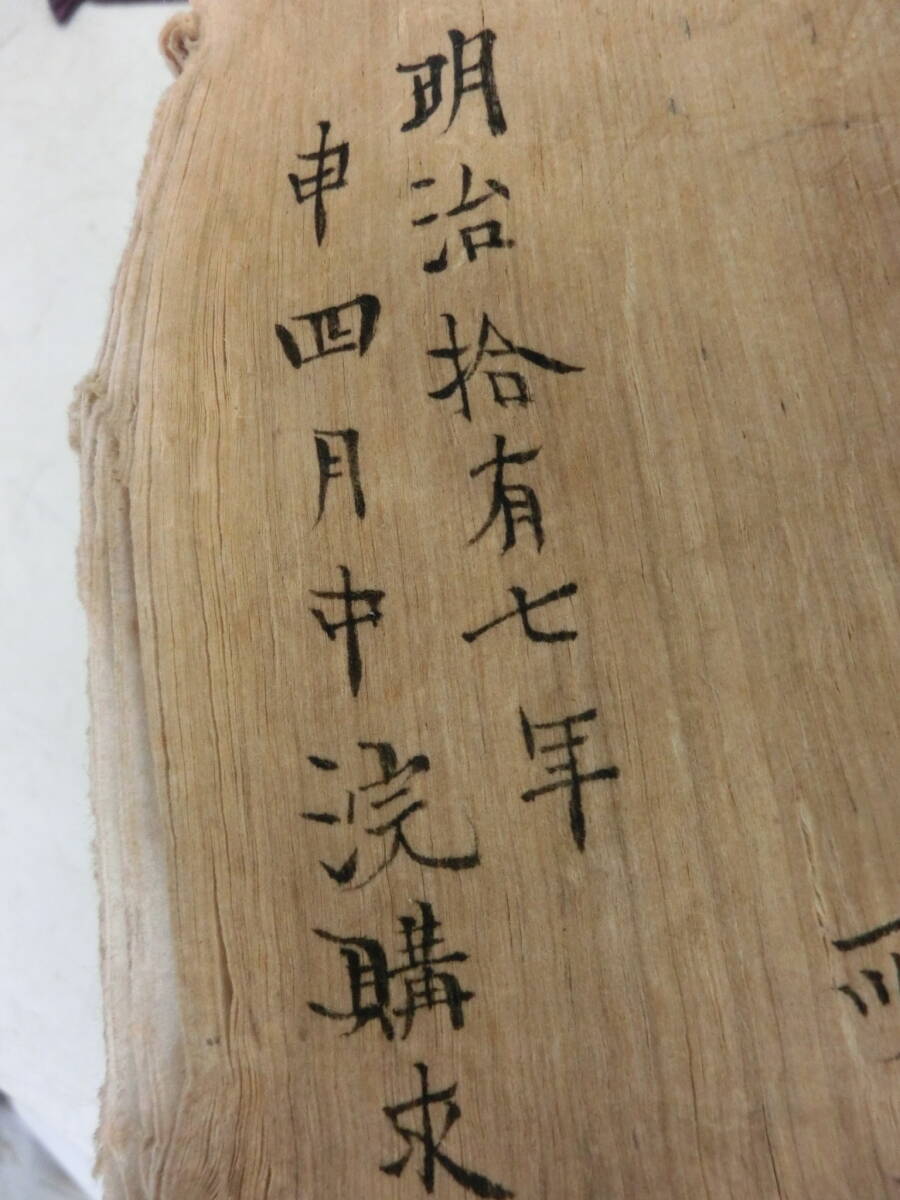 明治拾有七年
申四月中浣購求